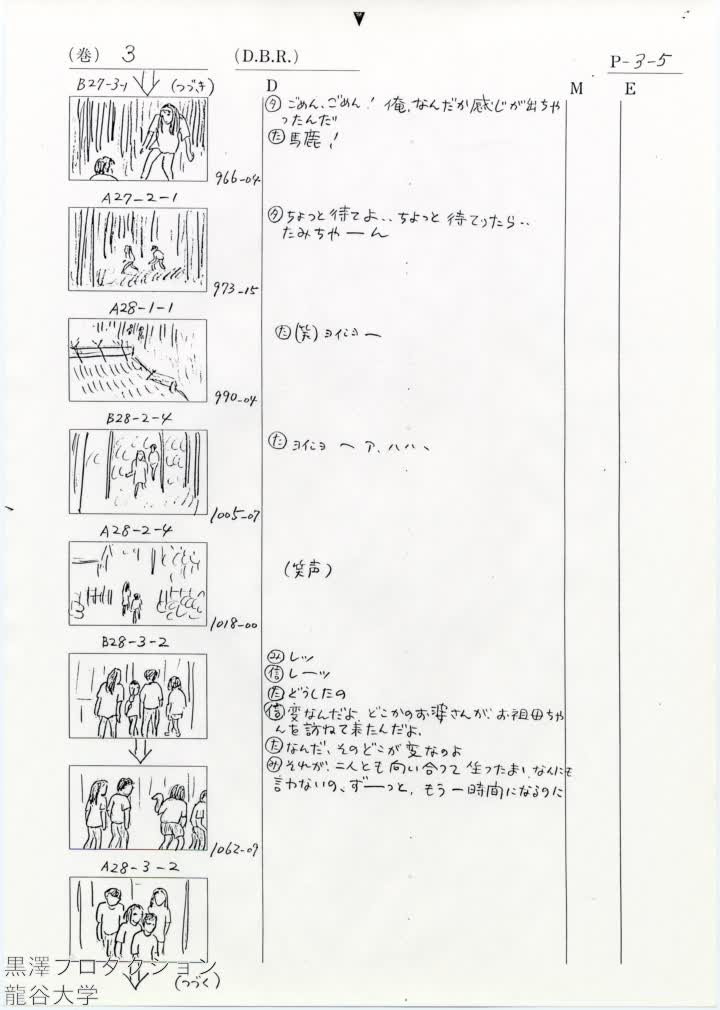 (巻) 3
(D.B.R.)
P-3-5
D
M
E
B27-3-1 (つづき)
タ ごめん、ごめん! 俺、なんだか感じが出ちゃ
ったんだ
た 馬鹿!
966-04
A27-2-1
タ ちょっと待てよ‥ちょっと待てったら‥
たみちゃーん
973-15
A28-1-1
た (笑) ヨイショー
990-04
B28-2-4
た ヨイショ ー ア、ハハハ、
1005-07
A28-2-4
(笑声)
1018-00
B28-3-2
み シッ
信 シーッ
た どうしたの
信 変なんだよ、どこかのお婆さんが、お祖母ちゃ
んを訪ねて来たんだよ、
た なんだ、そのどこが変なのよ
み それが、二人とも向い合って坐ったまゝなんにも
言わないの、ずーっと、もう一時間になるのに
1062-09
A28-3-2
(つづく)
黒澤プロダクション
龍谷大学